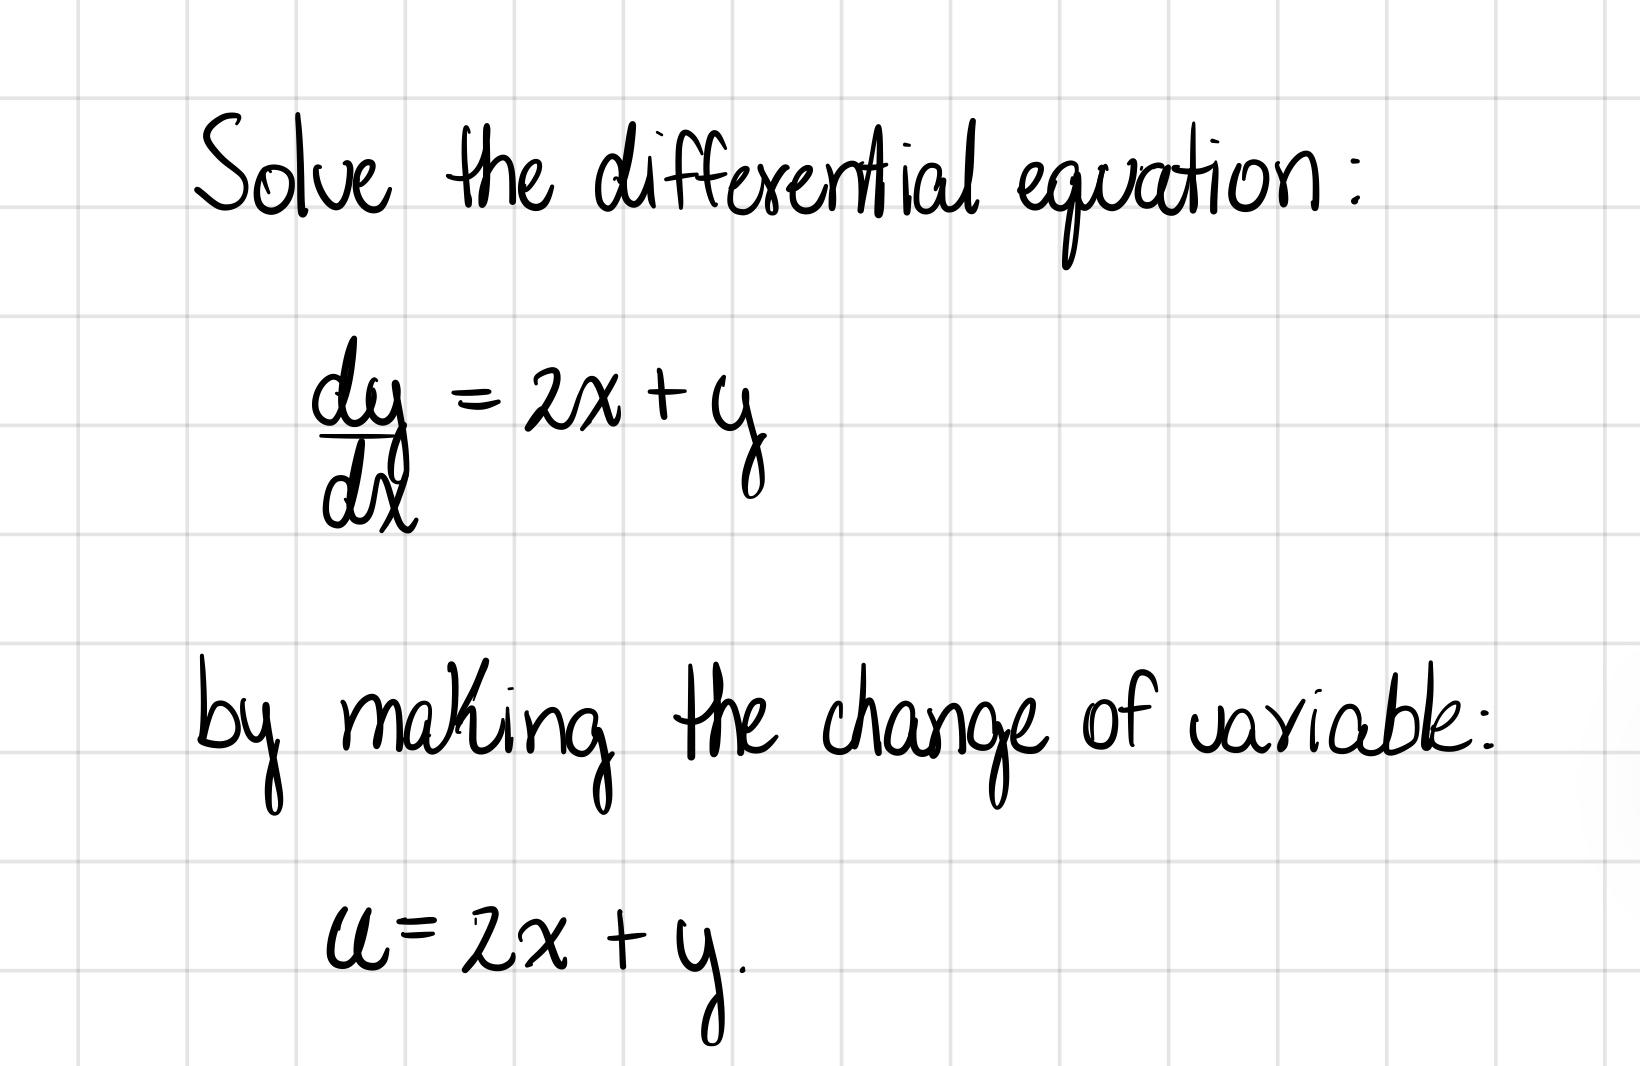 Solve the differential equation:
dy/dx = 2x + y
by making the change of variable:
u = 2x + y.